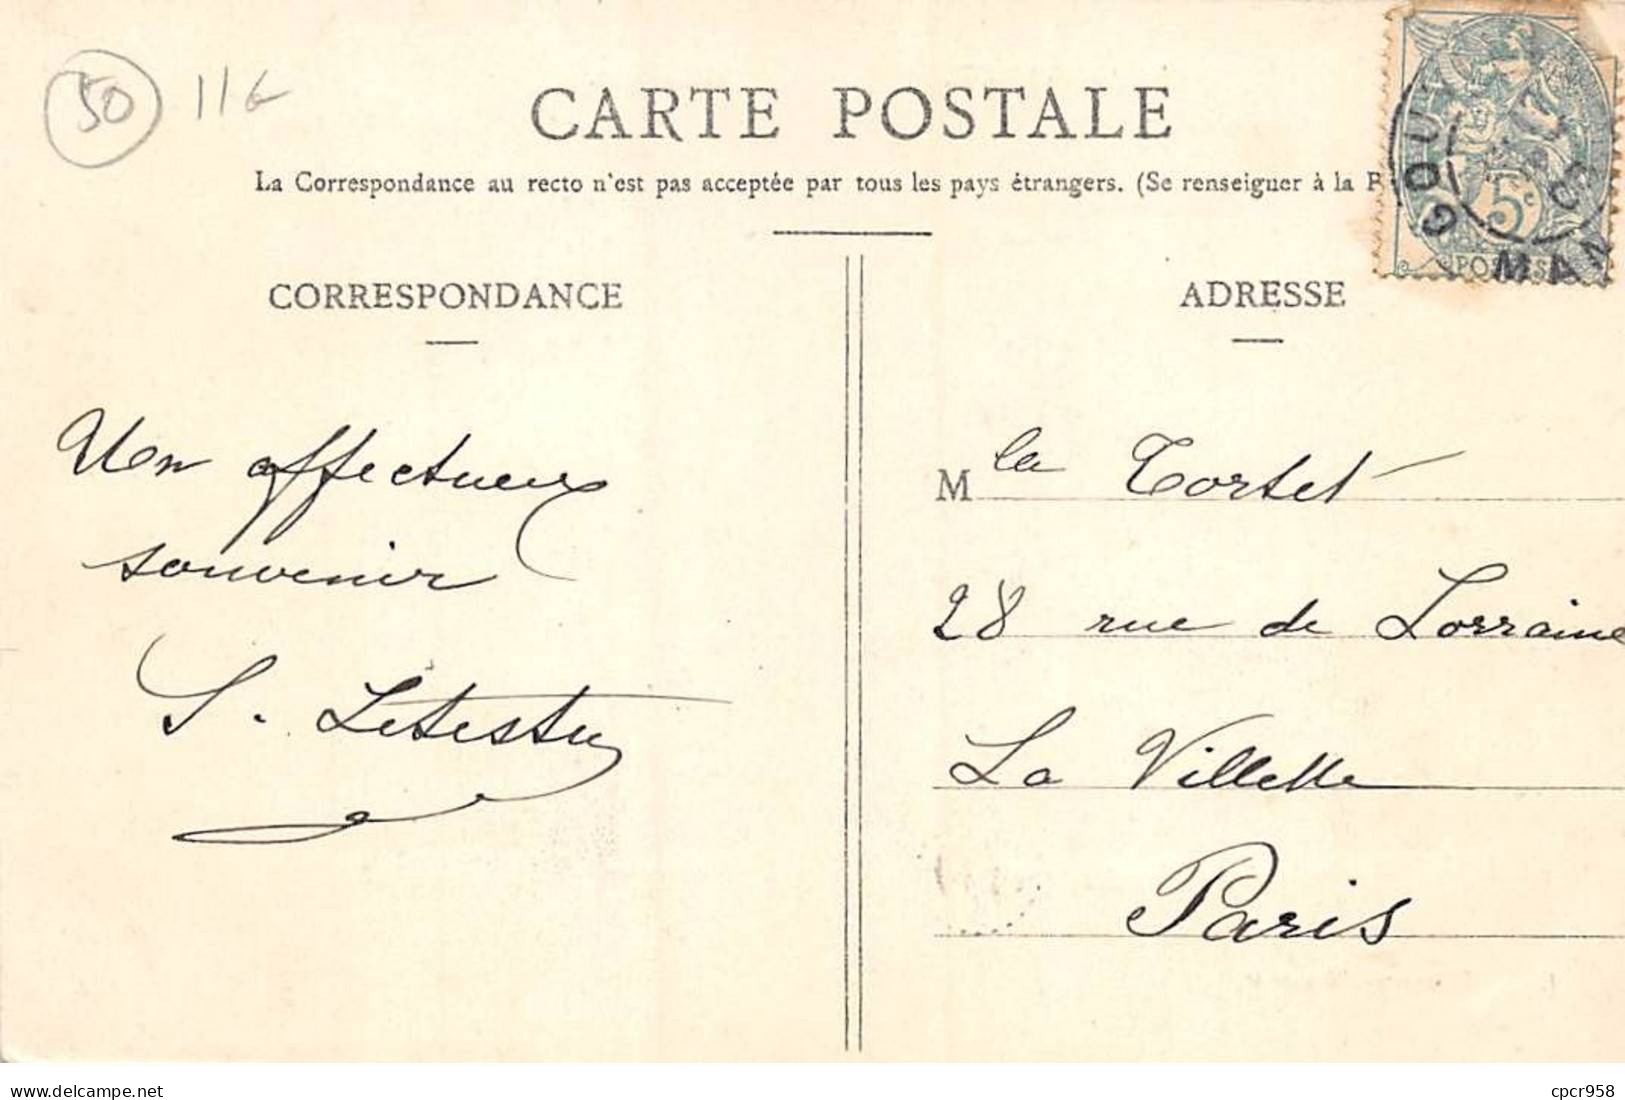 50 11€
CARTE POSTALE
La Correspondance au recto n'est pas acceptée par tous les pays étrangers. (Se renseigner à la P
5c
POSTES
GOUV
MAN
CORRESPONDANCE
ADRESSE
Un affectueux
souvenir
S. Letestu
Mlle Tortel
28 rue de Lorraine
La Villette
Paris
50-116-18170
cpcr958